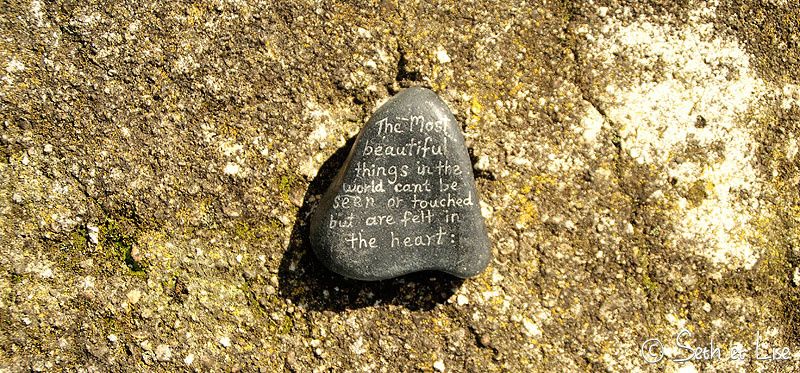 The Most
beautiful
things in the
world can't be
seen or touched
but are felt in
the heart:
© Seth et Lise